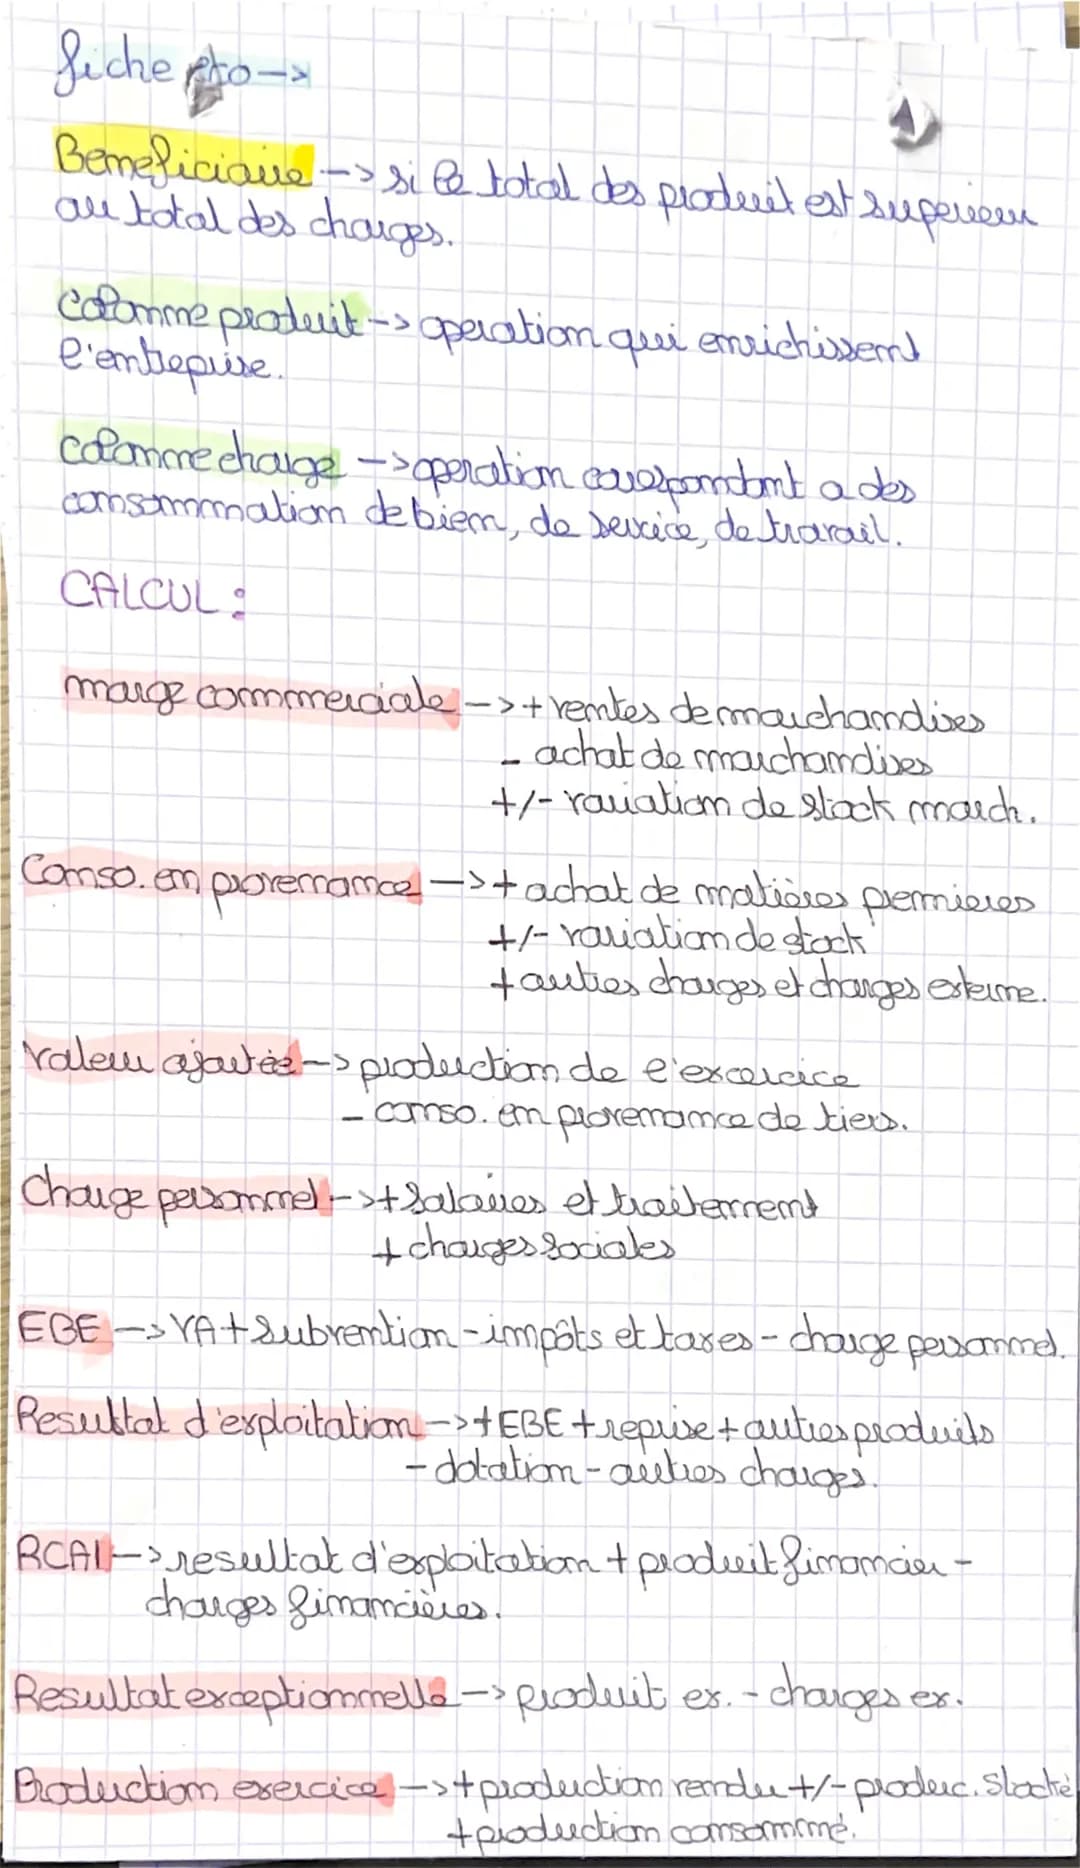 fiche éco ->
Beneficiaire -> si le total des produit est superieur
au total des charges.
Colonne produit -> operation qui enrichissent
l'entrepise.
Colonne charge -> operation correspondant a des
consommation de bien, de service, de travail.
CALCUL :
marge commerciale -> + ventes de marchandises
- achat de marchandises
+/- variation de stock march.
Conso. en provenance -> + achat de matières premieres
+/- variation de stock
+ autres charges et charges externe.
Valeur ajoutée -> production de l'excercice
- conso. en provenance de tiers.
Charge personnel -> + Salaires et traitement
+ charges sociales
EBE -> VA + subvention - impôts et taxes - charge personnel.
Resultat d'exploitation -> + EBE + reprise + autres produits
- dotation - autres charges.
RCAI -> resultat d'exploitation + produit financier -
charges financières.
Resultat exceptionnelle -> produit ex. - charges ex.
Production exercice -> + production vendu +/- produc. Stocké
+ production consommé.